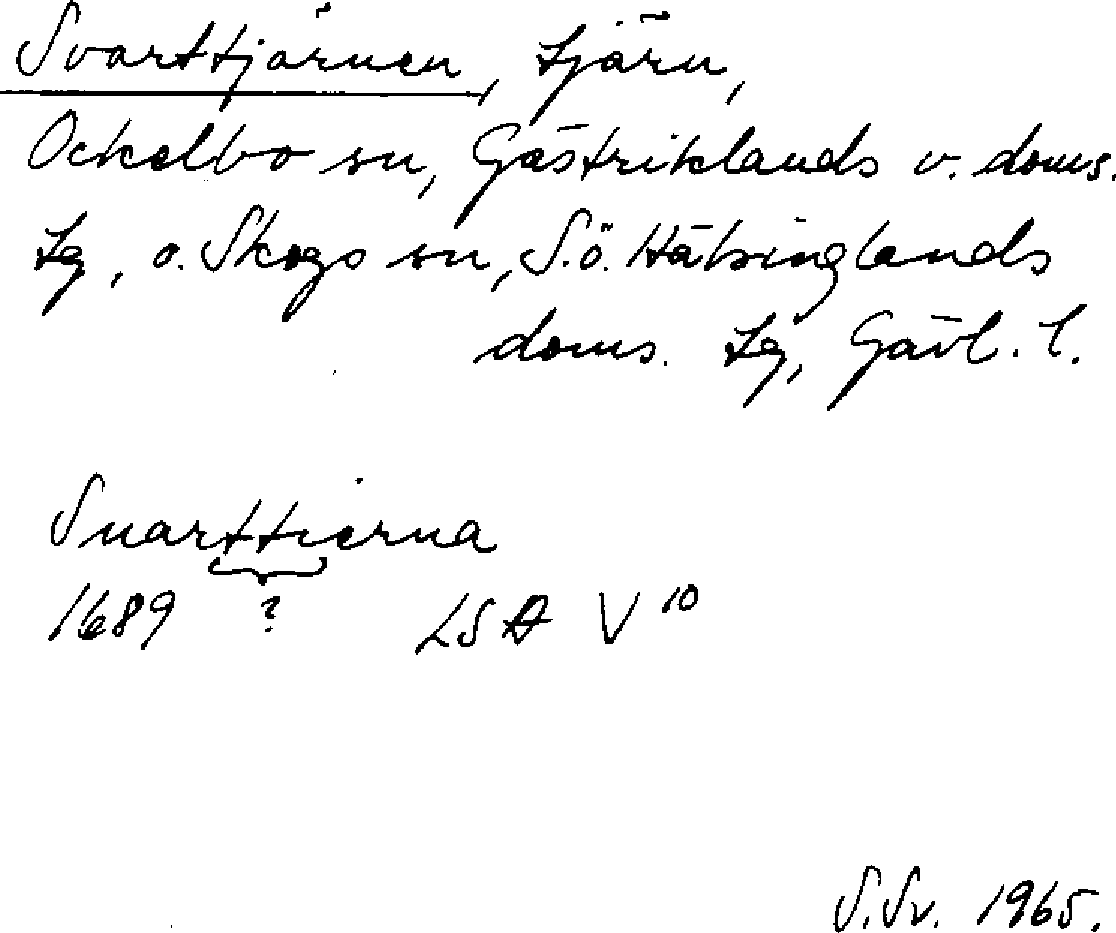 Svarttjärnen, tjärn,
Ockelbo sn, Gästriklands v. doms.
lg, o. Skogs sn, S.ö. Hälsinglands
doms. lg, Gävl. l.
Suarttierna
1689 ? LSA V 10
S.Sv. 1965.